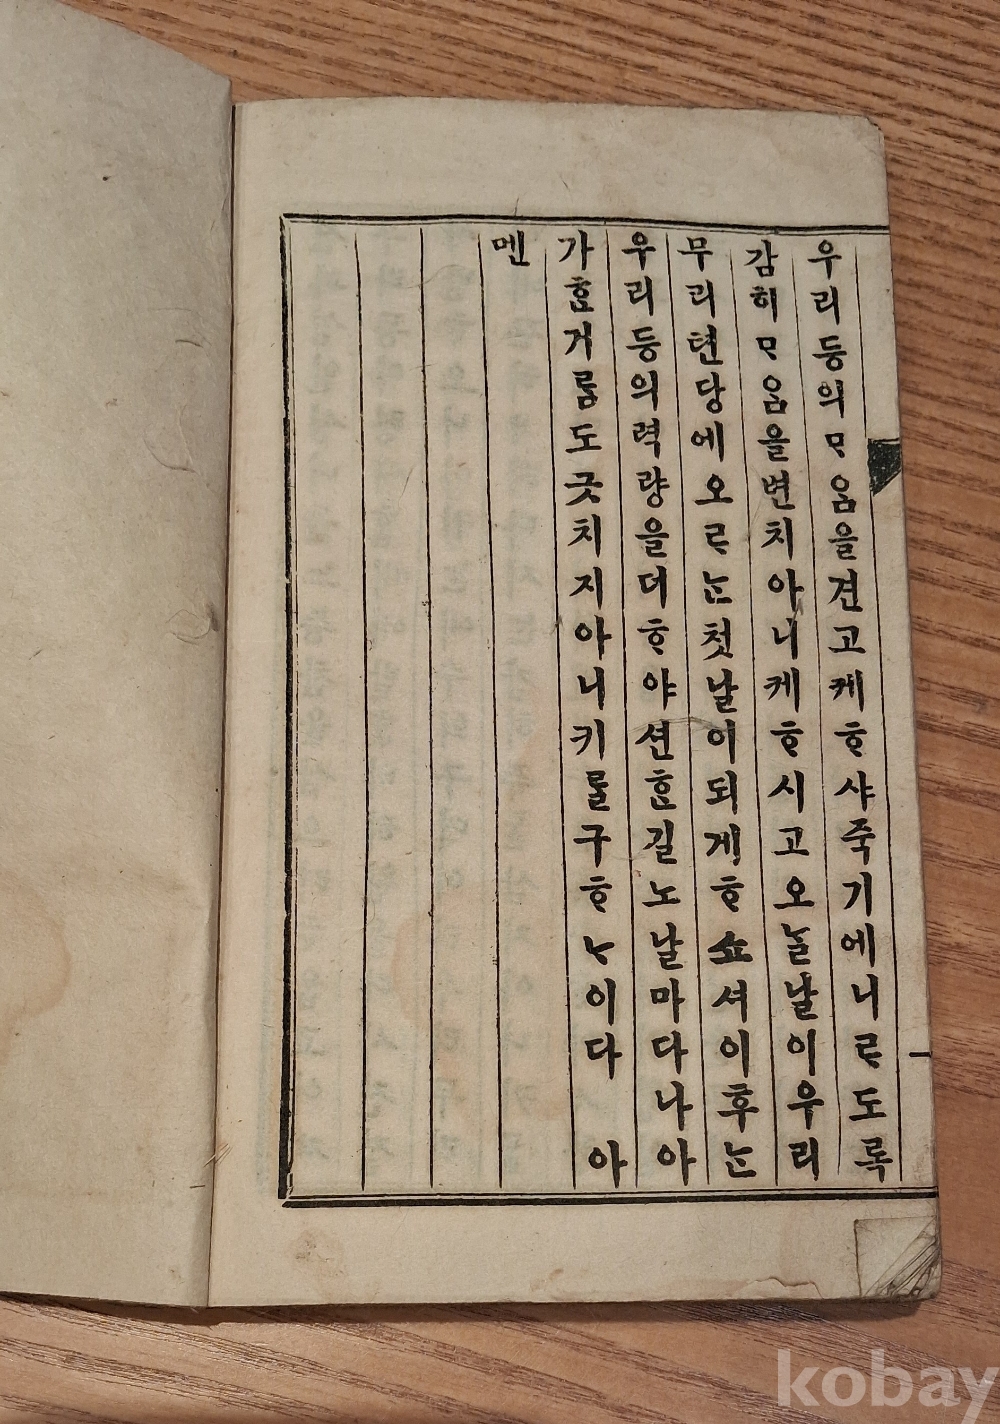 우리등의ᄆᆞᄋᆞᆷ을견고케ᄒᆞ샤죽기에니ᄅᆞ도록
감히ᄆᆞᄋᆞᆷ을변치아니케ᄒᆞ시고오ᄂᆞᆯ날이우리
무리텬당에오ᄅᆞᄂᆞᆫ첫날이되게ᄒᆞ쇼셔이후ᄂᆞᆫ
우리등의력량을더ᄒᆞ야션ᄒᆞᆫ길노날마다나아
가ᄒᆞᆫ거름도긋치지아니키ᄅᆞᆯ구ᄒᆞᄂᆞ이다 아
멘
kobay